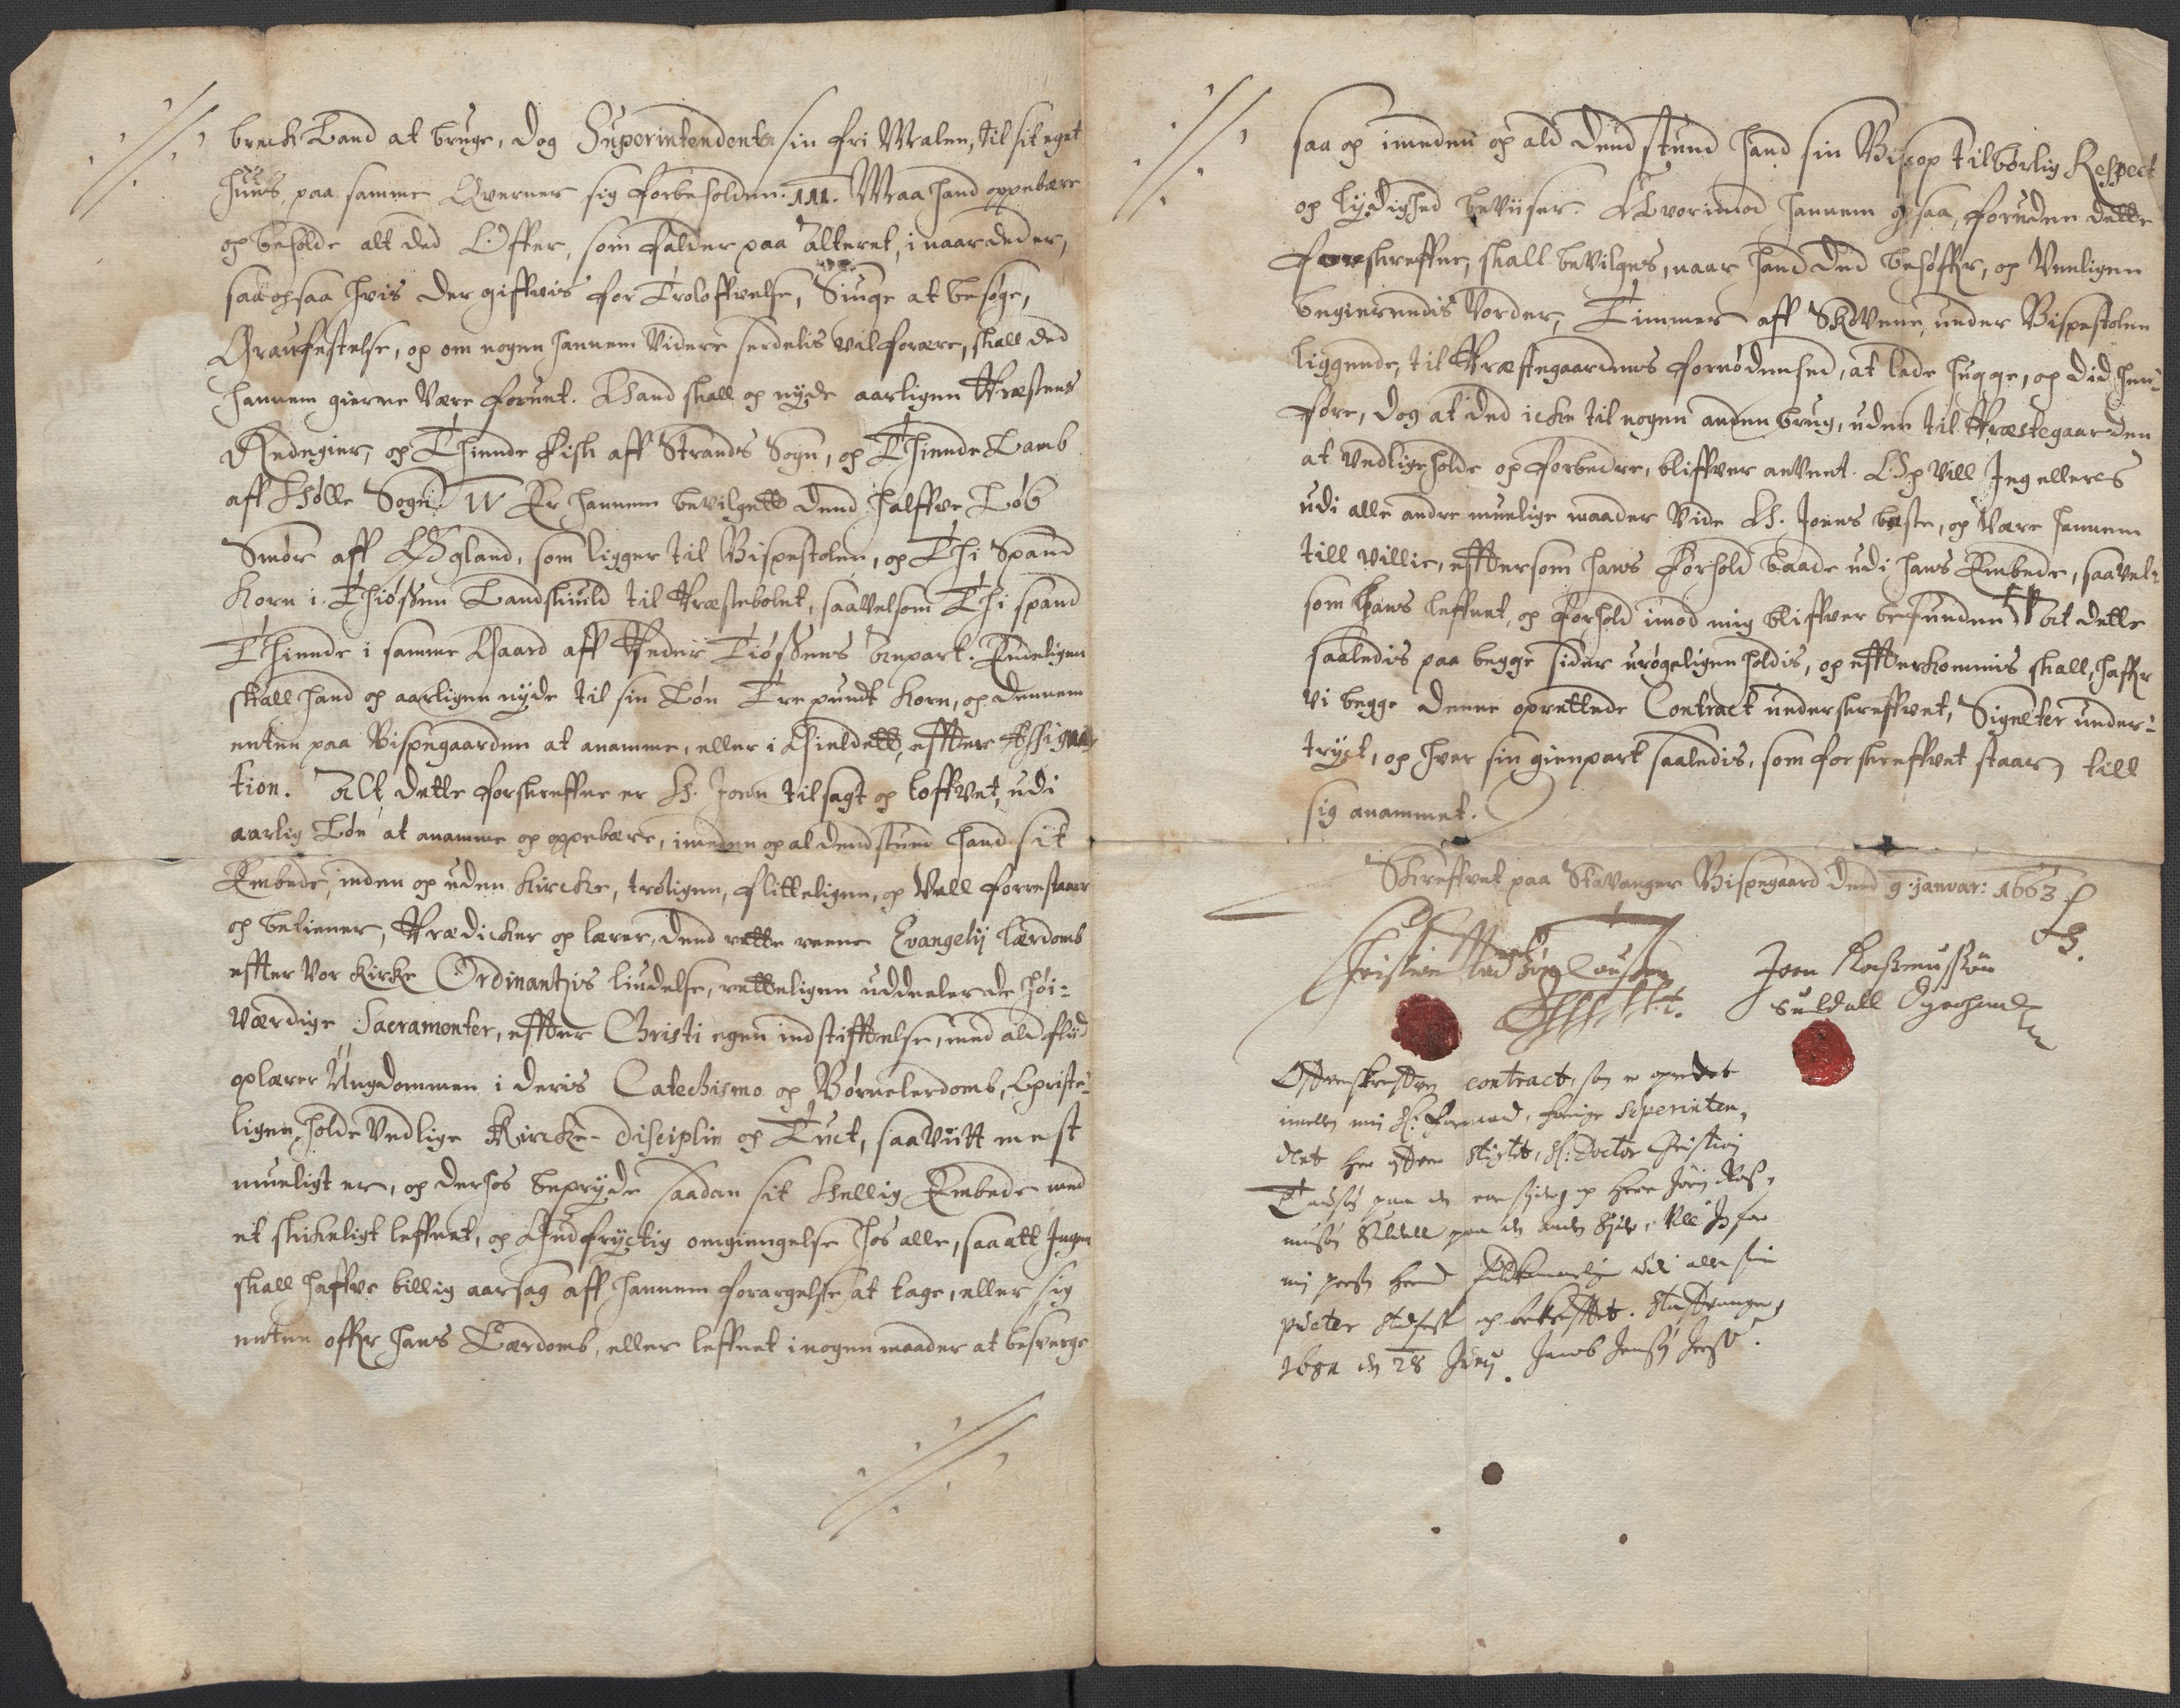 breck Land at bruge, dog Superintendenten sin fri Malen, til sit eget
Huus, paa samme Qverner sig forbeholden. III. Maa hand oppebære
og beholde alt ded Offer, som falder paa Alteret, i naar ded er,
saa ogsaa hvis der giffvis for Troloffvelse, Siuge at besøge,
Grauffestelse, og om nogen hannem videre serdelis vil forære, skall ded
hannem gierne være forunt. Hand skall og nyde aarligen Præstens
Redegier, og Thiende Fisk aff Strands Sogn, og Thiende Lamb
aff Hølle Sogn. IV Er hannem bevilgett dend halffve Løb
Smør aff Ogland, som ligger til Bispestolen, og Thi Spand
Korn i Thiøssen Landskuld til Præstebolet, saavelsom Thi spand
Thiende i samme Gaard aff Peder Tiøssens Anpart. Endeligen
skall hand og aarligen nyde til sin Løn Tre pundt Korn, og dennem
enten paa Bispegaarden at anamme, eller i Gieldett, effter Assigna-
tion. Alt dette forskreffne er H. Joen tilsagt og loffvet, udi
aarlig Løn at anamme og oppebære, imeden og al dend stund hand sit
Embede, inden og uden Kircke, troligen, flitteligen, og vell forrestaar
og betiener, Prædicker og lærer, dend rette reene Evangelij Lærdomb
effter vor Kirke Ordinantzis liudelse, retteligen uddeeler de høi-
værdige Sacramenter, effter Christi egen indstifftelse, med ald fliid
oplærer Ungdommen i deris Catechismo og Børnelerdomb, Christe-
ligen holde vedlige Kircke-disciplin og Tuct, saavitt mest
mueligt er, og derhos bepryde saadan sit hellig Embede med
et skickeligt leffnet, og Gudfryctig omgiengelse hos alle, saa att Ingen
skall haffve billig aarsag aff hannem forargelse at tage, eller sig
enten offver hans Lærdomb, eller leffnet i nogen maader at besverge
saa og imeden og ald dend stund hand sin Biscop tilbørlig Respect
og lydighed beviiser. Hvorimod hannem ogsaa, foruden dette
forreskreffne, skall bevilges, naar hand ded behøffver, og venligen
begierendis vorder, Timmer aff Skovene, under Bispestolen
liggende, til Præstegaardens fornødenhed, at lade hugge, og did hen-
føre, dog at ded icke til nogen anden brug, uden til Præstegaarden
at vedligeholde og forbedre, bliffver anvent. Og vill Jeg ellers
udi alle andre muelige maader vide H. Joens beste, og være hannem
till villie, effttersom hans Forhold baade udi hans Embede, saavel-
som hans leffnet, og forhold imod mig bliffver befunden. At dette
saaledis paa begge sider urøgeligen holdis, og effterkommis skall, haffver
vi begge denne oprettede Contract underskreffvet, Signeter under-
tryct, og hver sin gienpart saaledis, som forskreffvet staar, till
sig anammet.
Skreffvet paa Stavanger Bispegaard dend 9. Januar: 1663
Joen Rasmussøn
Suldall Egenhand
Offvenskreffven contract, som er oprettet
imellem min S: Formand, forige Superinten-
dent her offver Stigtet, S: Doctor Christian
Tausøn paa den ene side, og Herr Joen Ras-
musøn Suldall paa den anden side, vill Jeg for
min persohn hermed fuldkommelig udi alle sine
puncter stadfest og bekrefftet. Staffvanger,
1682 den 28 Junij. Jacob Jensøn Jersin.